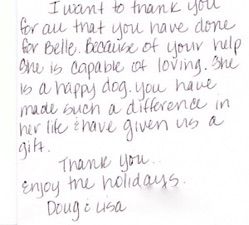 I want to thank you
for all that you have done
for Belle. Because of your help
she is capable of loving. She
is a happy dog. you have
made such a difference in
her life & have given us a
gift.
Thank you..
enjoy the holidays.
Doug & Lisa